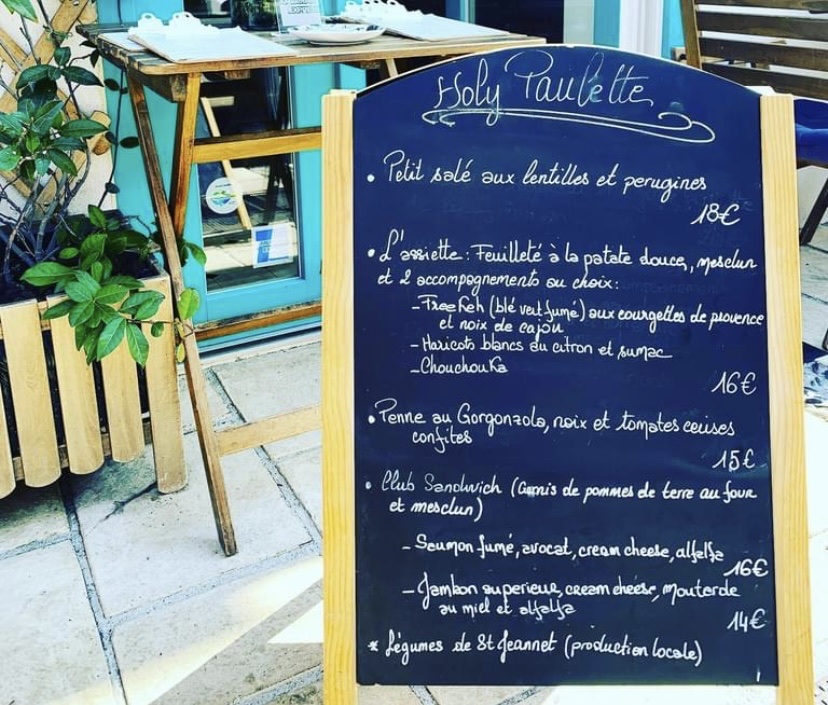 Holy Paulette
• Petit salé aux lentilles et perugines
18€
• L'assiette : Feuilleté à la patate douce, mesclun
et 2 accompagnements au choix :
- FreeKeh (blé vert fumé) aux courgettes de provence
et noix de cajou
- Haricots blancs au citron et sumac
- ChouchouKa
16€
• Penne au Gorgonzola, noix et tomates cerises
confites
15€
• Club Sandwich (Garnis de pommes de terre au four
et mesclun)
- Saumon fumé, avocat, cream cheese, alfalfa
16€
- Jambon superieur, cream cheese, mouterde
au miel et alfalfa
14€
* Légumes de St Jeannet (production locale)